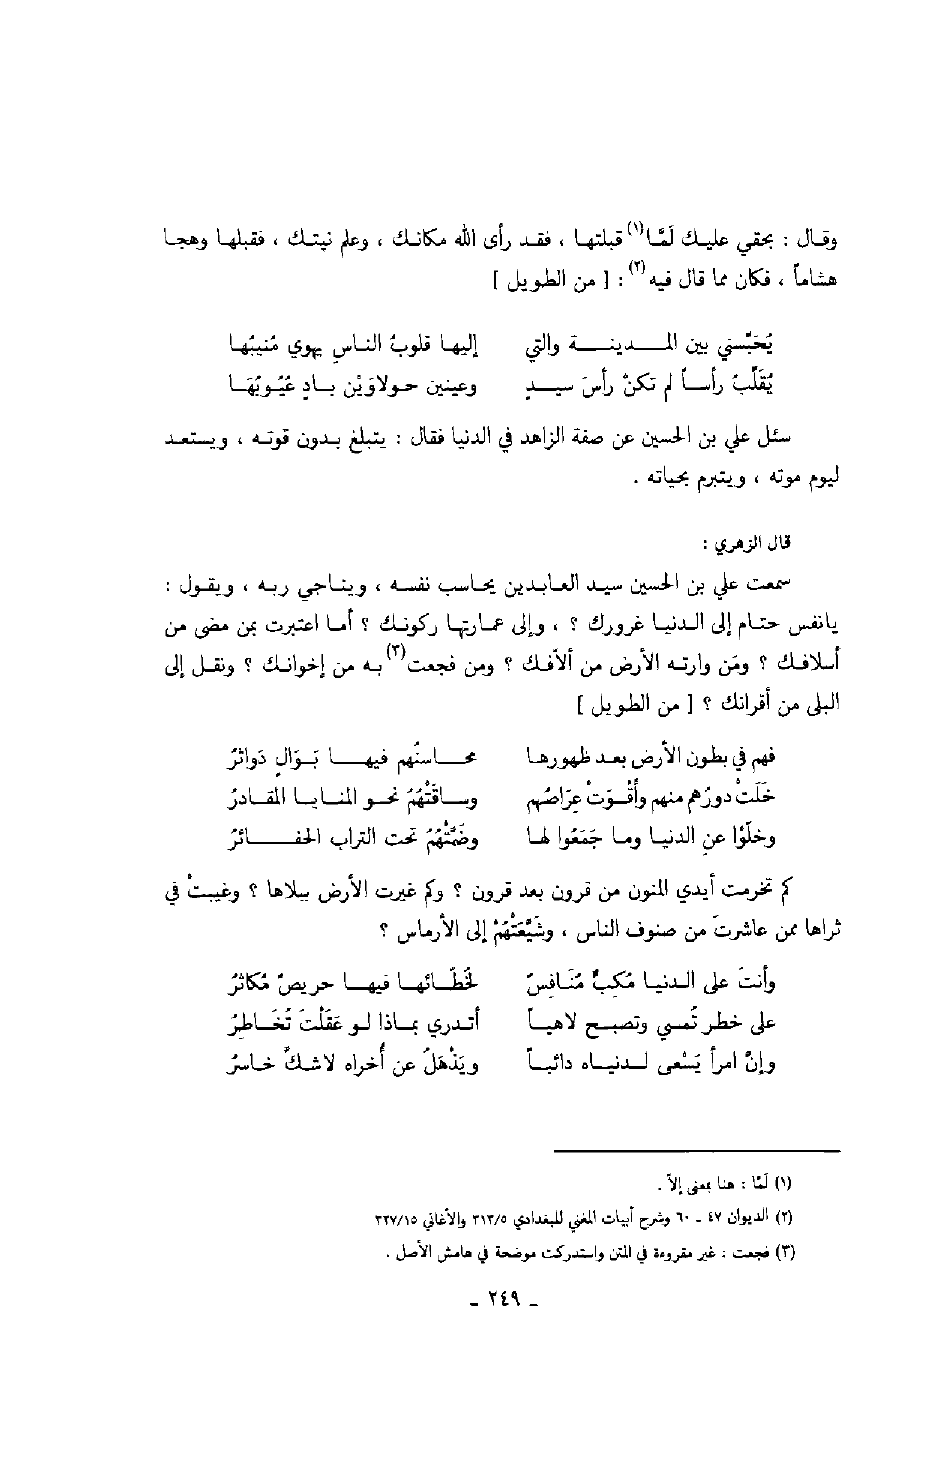 وقال : بحقي عليك لَمَّا(١) قبلتها ، فقد رأى الله مكانك ، وعلم نيتك ، فقبلها وهجا
هشاماً ، فكان مما قال فيه(٢) : [ من الطويل ]
يُحَبِّسني بين المدينة والتي إليها قلوبُ الناسِ يهوي مُنيبُها
يُقَلِّبُ رأساً لم تكنْ رأسَ سيدٍ وعينين حولاوَيْن بادٍ عُيُوبُهَا
سئل علي بن الحسين عن صفة الزاهد في الدنيا فقال : يتبلغ بدون قوته ، ويستعد
ليوم موته ، ويتبرم بحياته .
قال الزهري :
سمعت علي بن الحسين سيد العابدين يحاسب نفسه ، ويناجي ربه ، ويقول :
يانفس حتام إلى الدنيا غرورك ؟ ، وإلى عمارتها ركونك ؟ أما اعتبرت بمن مضى من
أسلافك ؟ ومَن وارته الأرض من ألافك ؟ ومن فجعت(٣) به من إخوانك ؟ ونقل إلى
البلى من أقرانك ؟ [ من الطويل ]
فهم في بطون الأرض بعد ظهورها محاسنُهم فيها بَوَالٍ دَواثرُ
خَلَتْ دورُهم منهم وأَقْوَتْ عِرَاصُهم وساقَتْهُمُ نحو المنايا المقادرُ
وخلَّوْا عنِ الدنيا وما جَمَعُوا لها وضَمَّتْهُمُ تحت التراب الحفائرُ
كم تخرمت أيدي المنون من قرون بعد قرون ؟ وكم غيرت الأرض ببلاها ؟ وغيبتْ في
ثراها ممن عاشرتَ من صنوف الناس ، وشَيَّعَتْهُمْ إلى الأرماس ؟
وأنتَ على الدنيا مُكِبٌّ مُنَافِسٌ لخُطَّابها فيها حريصٌ مُكاثرُ
على خطرٍ تُمسي وتصبح لاهياً أتدري بماذا لو عَقَلْتَ تُخَاطِرُ
وإنَّ امرأ يَسْعى لدنياه دائباً ويَذْهَلُ عن أُخراه لاشكَّ خاسرُ
(١) لَمَّا : هنا بمعنى إلاّ .
(٢) الديوان ٤٧ ـ ٦٠ وشرح أبيات المغني للبغدادي ٣١٣/٥ والأغاني ٣٢٧/١٥
(٣) فجعت : غير مقروءة في المتن واستدركت موضحة في هامش الأصل .
ـ ٢٤٩ ـ